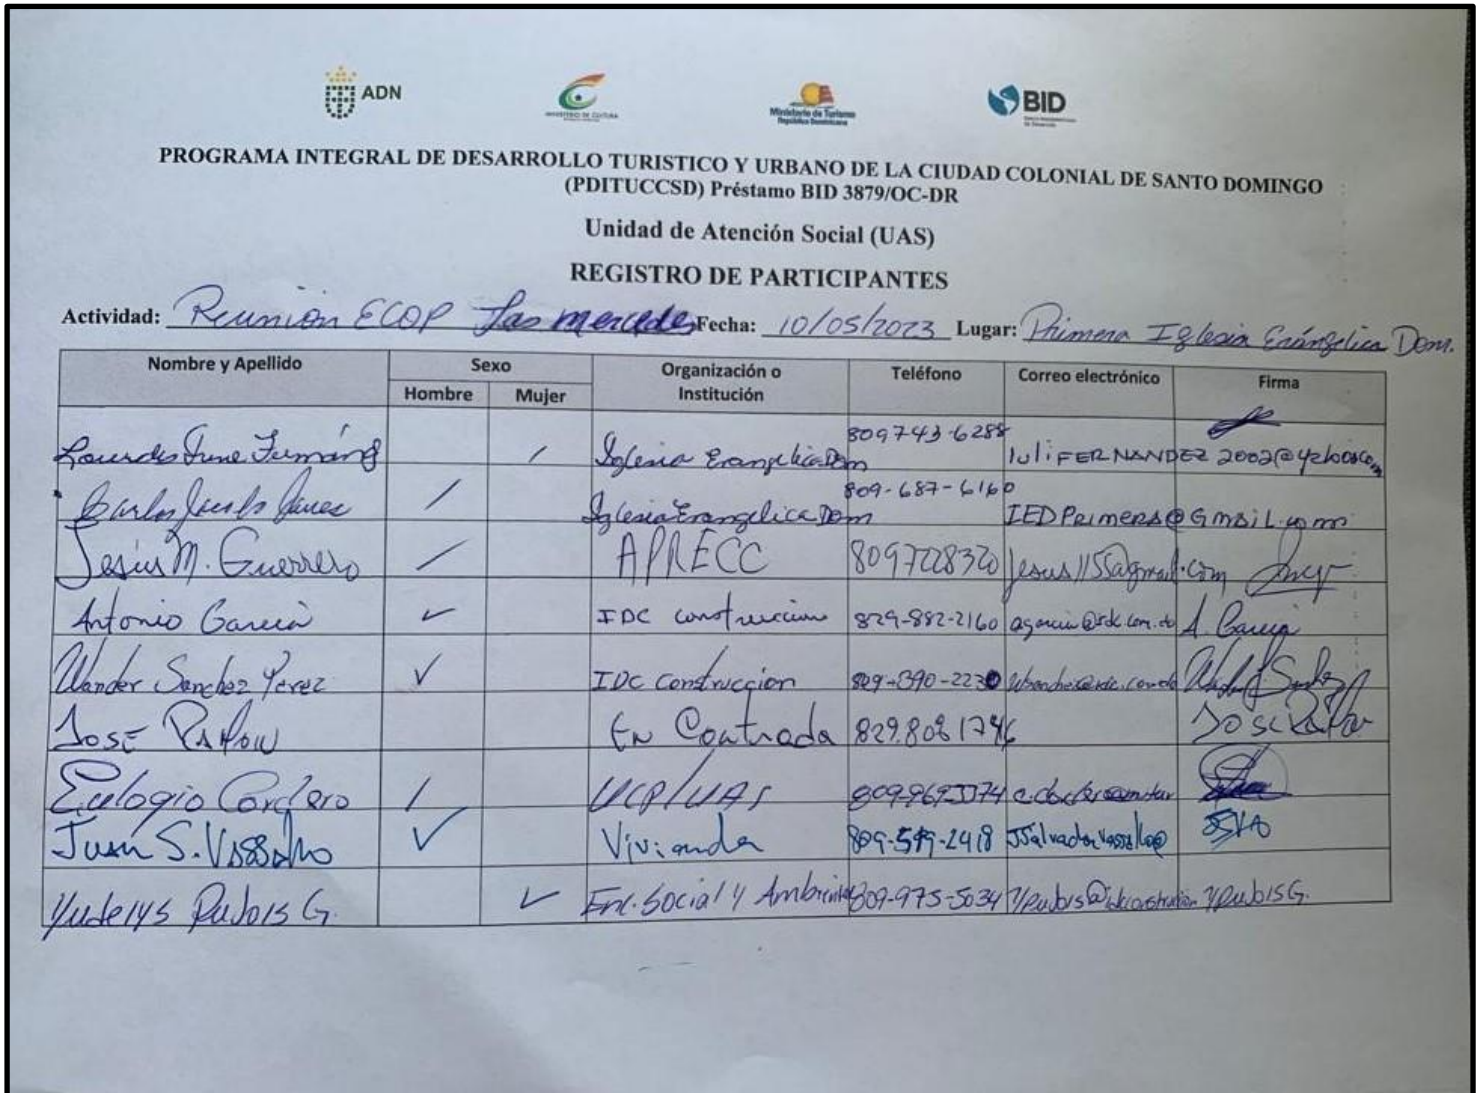 ADN
MINISTERIO DE CULTURA
Ministerio de Turismo
República Dominicana
BID
PROGRAMA INTEGRAL DE DESARROLLO TURISTICO Y URBANO DE LA CIUDAD COLONIAL DE SANTO DOMINGO
(PDITUCCSD) Préstamo BID 3879/OC-DR
Unidad de Atención Social (UAS)
REGISTRO DE PARTICIPANTES
Actividad: Reunión ECOP Las mercedes Fecha: 10/05/2023 Lugar: Primera Iglesia Evángelica Dom.
Nombre y Apellido Sexo Organización o Institución Teléfono Correo electrónico Firma
Hombre Mujer
Lourdes / Iglesia Evangelica Dom 809743-6288
Carlos / Iglesia Evangelica Dom 809-687-6160 IEDPrimera@Gmail.com
Jesús M. Guerrero / APRECC 8097228320 Jesus115@gmail.com
Antonio García ✓ IDC construccion 829-882-2160 A. García
Wander Sanchez Perez ✓ IDC Construccion 809-390-2230
José Ramon En Contrada 829.808 1746 José Ramon
Eulogio Cordero / UCP/UAS
Juan S. Vassallo ✓ Vivienda JSalvadorVassallo@
Yudelys Pujols G. ✓ Enc. Social y Ambiental 809-975-5034 Ypujols G.